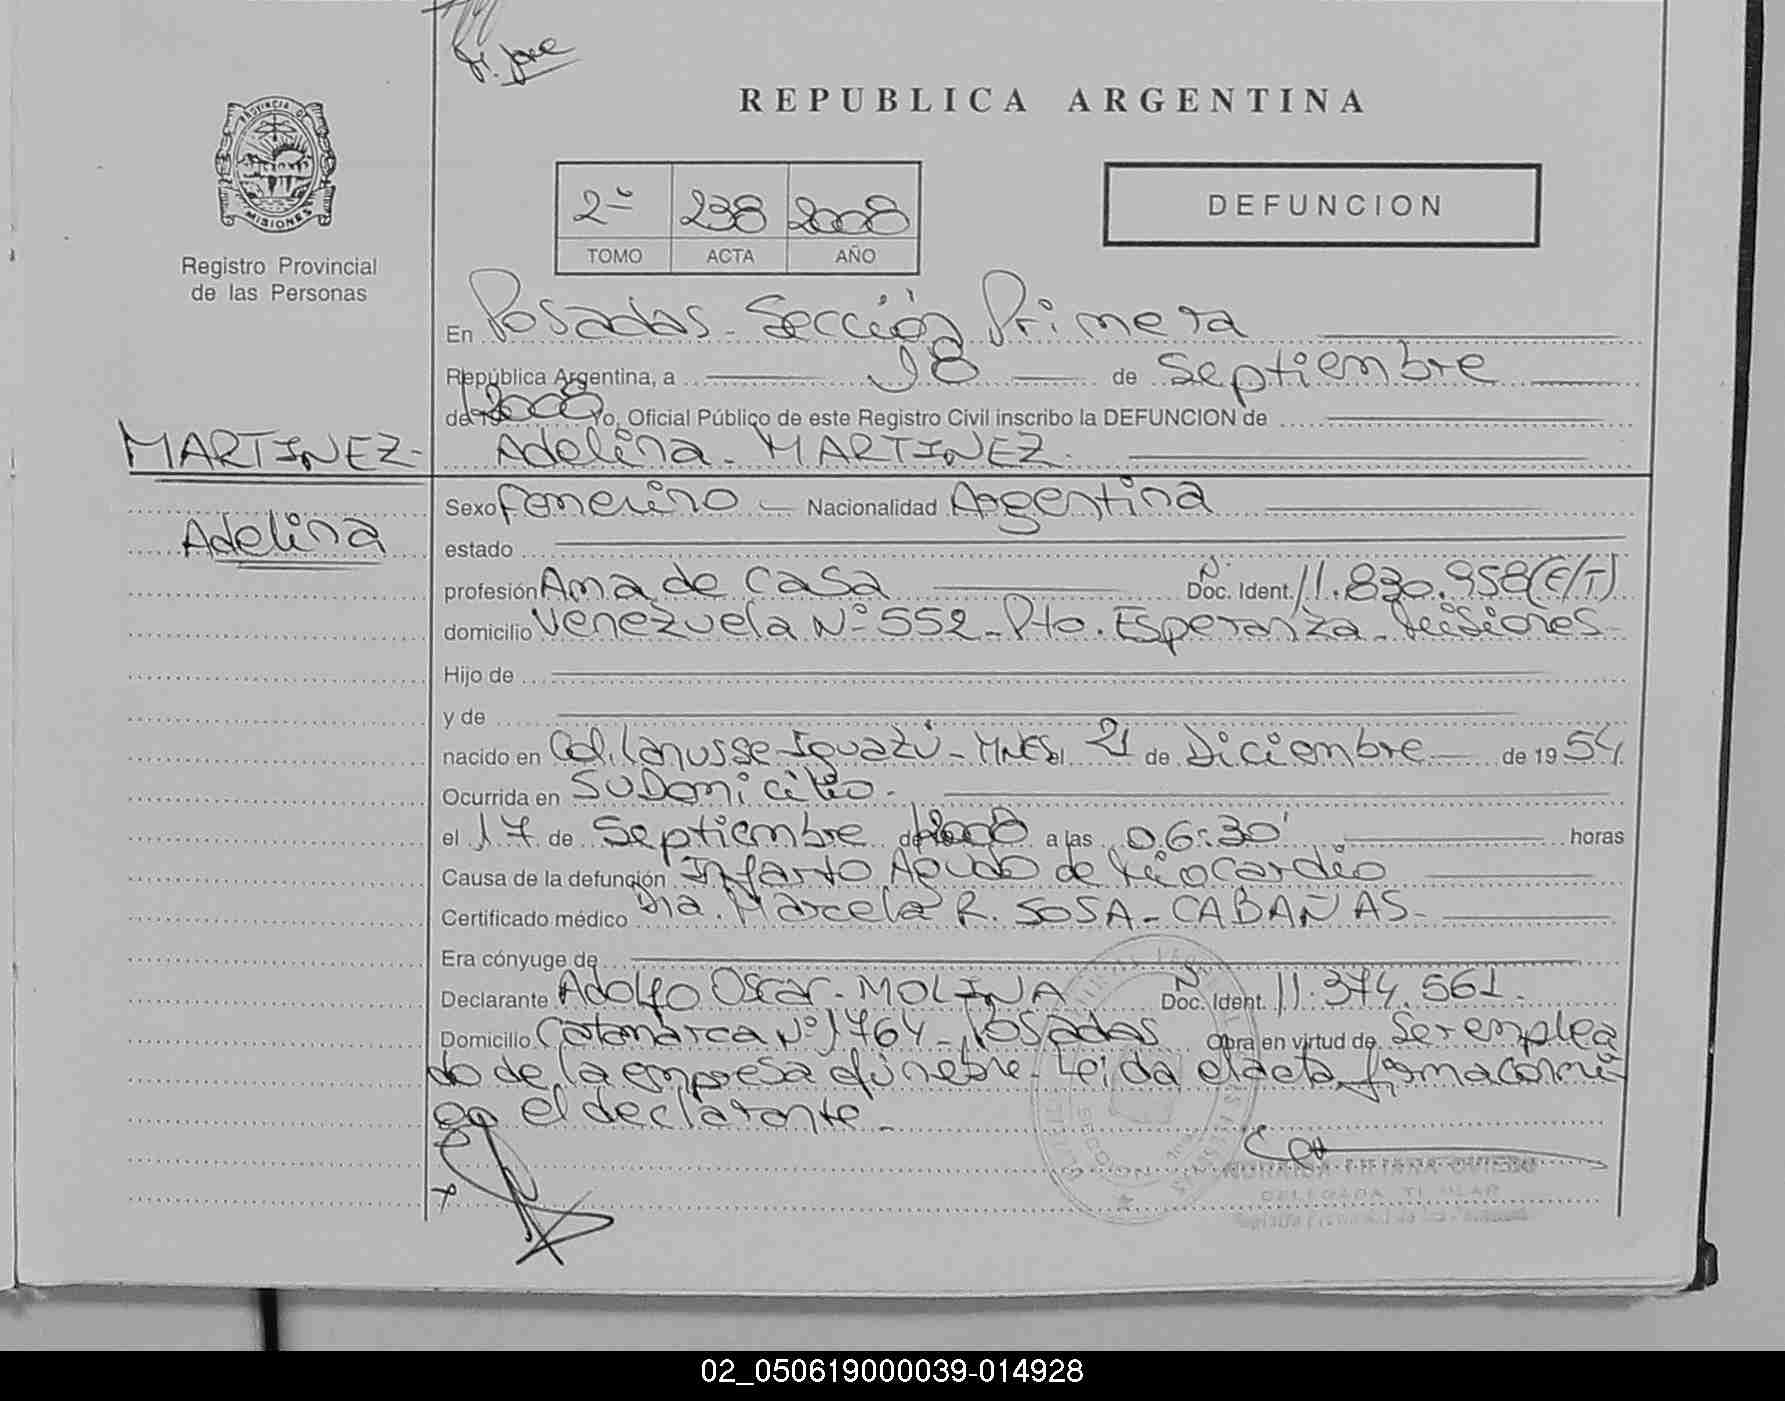 REPUBLICA ARGENTINA
PROVINCIA DE
MISIONES
Registro Provincial
de las Personas
2º 238 2008
TOMO ACTA AÑO
DEFUNCION
En Posadas - Sección Primera
República Argentina, a 18 de Septiembre
de 19 2008 Yo, Oficial Público de este Registro Civil inscribo la DEFUNCION de
MARTINEZ- Adelina - MARTINEZ.
Adelina
Sexo femenino - Nacionalidad Argentina
estado
profesión Ama de Casa Nº Doc. Ident. 11.830.958(E/T)
domicilio Venezuela Nº 552 - Pto. Esperanza - Misiones -
Hijo de
y de
nacido en Col. Lanusse - Iguazú - MNES el 21 de Diciembre de 19 54
Ocurrida en Su Domicilio -
el 17 de Septiembre de 2008 a las 06:30' horas
Causa de la defunción Infarto Agudo de Miocardio
Certificado médico Dra. Marcela R. SOSA - CABAÑAS -
Era cónyuge de
Declarante Adolfo Oscar - MOLINA Nº Doc. Ident. 11.374.561.
Domicilio Catamarca Nº 1764 - Posadas Obra en virtud de Ser emplea
do de la empresa fúnebre - Leída el acta firma conmi
go el declarante -
02_050619000039-014928